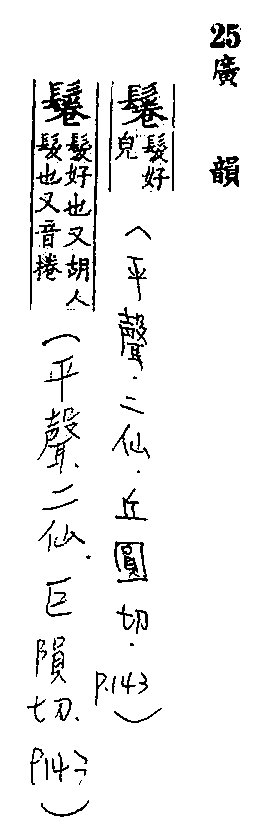 25廣韻
鬈髮好皃(平聲.二仙.丘圓切.P.143)
鬈髮好也又胡人髮也又音捲(平聲、二仙.巨隕切、P143)